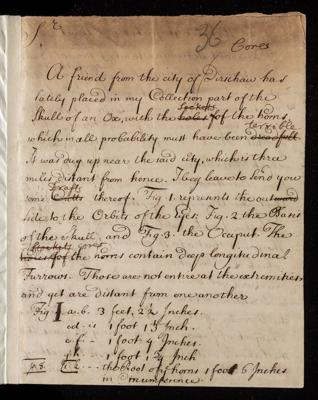 36
Cores
A friend from the city of Dirschaw has
lately placed in my Collection part of the
Skull of an Ox, with the sockets of the horns,
which in all probability must have been terrible dreadfull.
It was dug up near the said city, which is three
miles distant from hence. I beg leave to send you
some Drafts thereof. Fig. 1 represents the outward
side to the Orbits of the eyes; Fig. 2 the Basis
of the Skull, and Fig. 3. the Occiput. The
of the horns contain deep longitudinal
Furrows. Those are not entire at the extremities
and yet are distant from one another
Fig. 1 a.b. 3 feet, 2½ Inches.
cd - is 1 foot 1½ Inch.
e.f. - 1 foot 4 Inches.
g.h. 1 foot 1½ Inch
the Root of horns 1 foot 6 Inches
in Circumference.